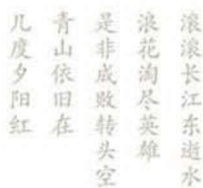 滚滚长江东逝水
浪花淘尽英雄
是非成败转头空
青山依旧在
几度夕阳红